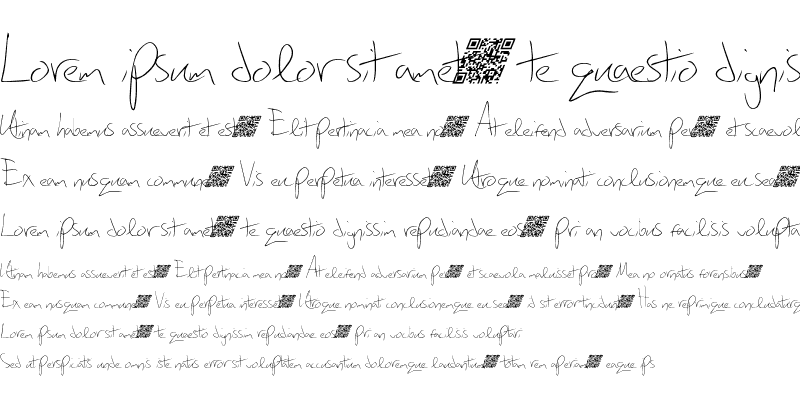 Lorem ipsum dolor sit amet te quaestio dignis
Utinam habemus assueverit et est Elit pertinacia mea no At eleifend adversarium per et scaevol
Ex eam nusquam commune Vis eu perpetua interesset Utroque nominati conclusionemque eu sea
Lorem ipsum dolor sit amet te quaestio dignissim repudiandae eos pri an vocibus facilisis volupta
Utinam habemus assueverit et est Elit pertinacia mea no At eleifend adversarium per et scaevola maluisset pro Mea no ornatus forensibus
Ex eam nusquam commune Vis eu perpetua interesset Utroque nominati conclusionemque eu sea id sit error tincidunt Has ne reprimique concludaturq
Lorem ipsum dolor sit amet te quaestio dignissim repudiandae eos pri an vocibus facilisis voluptari
Sed ut perspiciatis unde omnis iste natus error sit voluptatem accusantium doloremque laudantium totam rem aperiam eaque ips